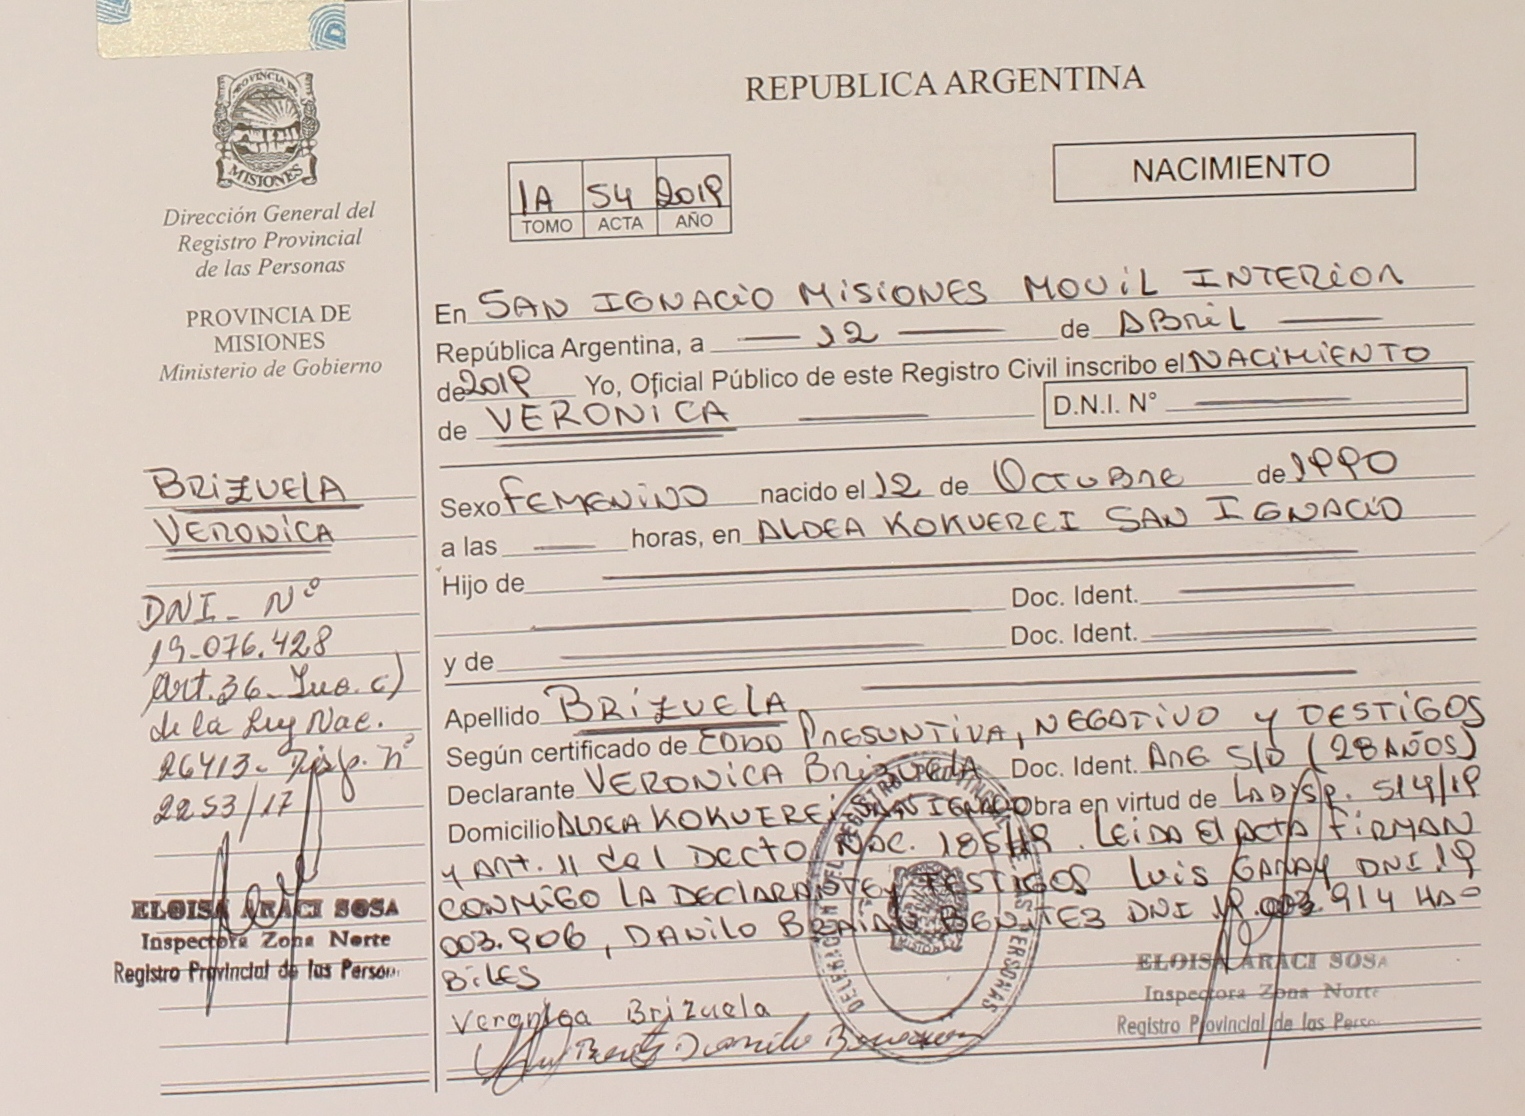 PROVINCIA DE
MISIONES
Dirección General del
Registro Provincial
de las Personas
PROVINCIA DE
MISIONES
Ministerio de Gobierno
BRIZUELA
VERONICA
DNI - Nº
19.076.428
Art. 36 - Inc. c)
de la Ley Nac.
26413 - Disp. nº
2253/17
ELOISA ARACI SOSA
Inspectora Zona Norte
Registro Provincial de las Person
REPUBLICA ARGENTINA
NACIMIENTO
1A 54 2019
TOMO ACTA AÑO
En SAN IGNACIO MISIONES MOVIL INTERIOR
República Argentina, a 12 de ABRIL
de 2019 Yo, Oficial Público de este Registro Civil inscribo el NACIMIENTO
de VERONICA D.N.I. N°
Sexo FEMENINO nacido el 12 de OCTUBRE de 1990
a las horas, en ALDEA KOKUEREI SAN IGNACIO
Hijo de
Doc. Ident.
Doc. Ident.
y de
Apellido BRIZUELA
Según certificado de EDAD PRESUNTIVA, NEGATIVO y TESTIGOS
Declarante VERONICA BRIZUELA Doc. Ident. ARG S/D (28 AÑOS)
Domicilio ALDEA KOKUEREI SAN IGNACIO Obra en virtud de LA DISP. 514/19
y ART. 11 del DECTO NAC. 185/19. LEIDA El ACTA FIRMAN
CONMIGO LA DECLARANTE y TESTIGOS LUIS GARAY DNI 19
003.906, DANILO BRAIAN BENITEZ DNI 19.003.914 HA=
BILES
Veronica Brizuela
ELOISA ARACI SOSA
Inspectora Zona Norte
Registro Provincial de las Perso